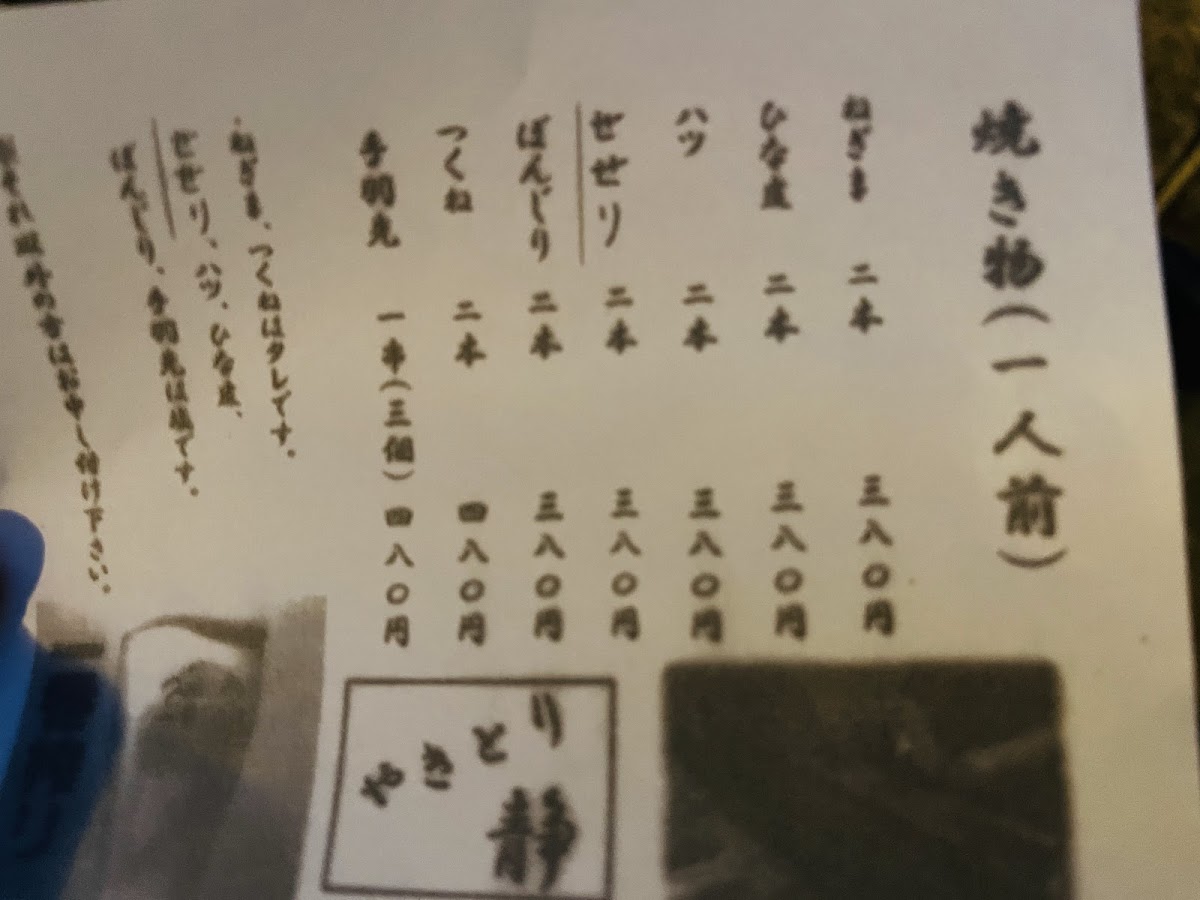 焼き物(一人前)
ねぎま 二本 三八〇円
ひな皮 二本 三八〇円
ハツ 二本 三八〇円
せせり 二本 三八〇円
ぼんじり 二本 三八〇円
つくね 二本 四八〇円
手羽先 一串(三個) 四八〇円
・ねぎま、つくねはタレです。
せせり、ハツ、ひな皮、
ぼんじり、手羽先は塩です。
それ以外の方はお申し付け下さい。
やきとり
静